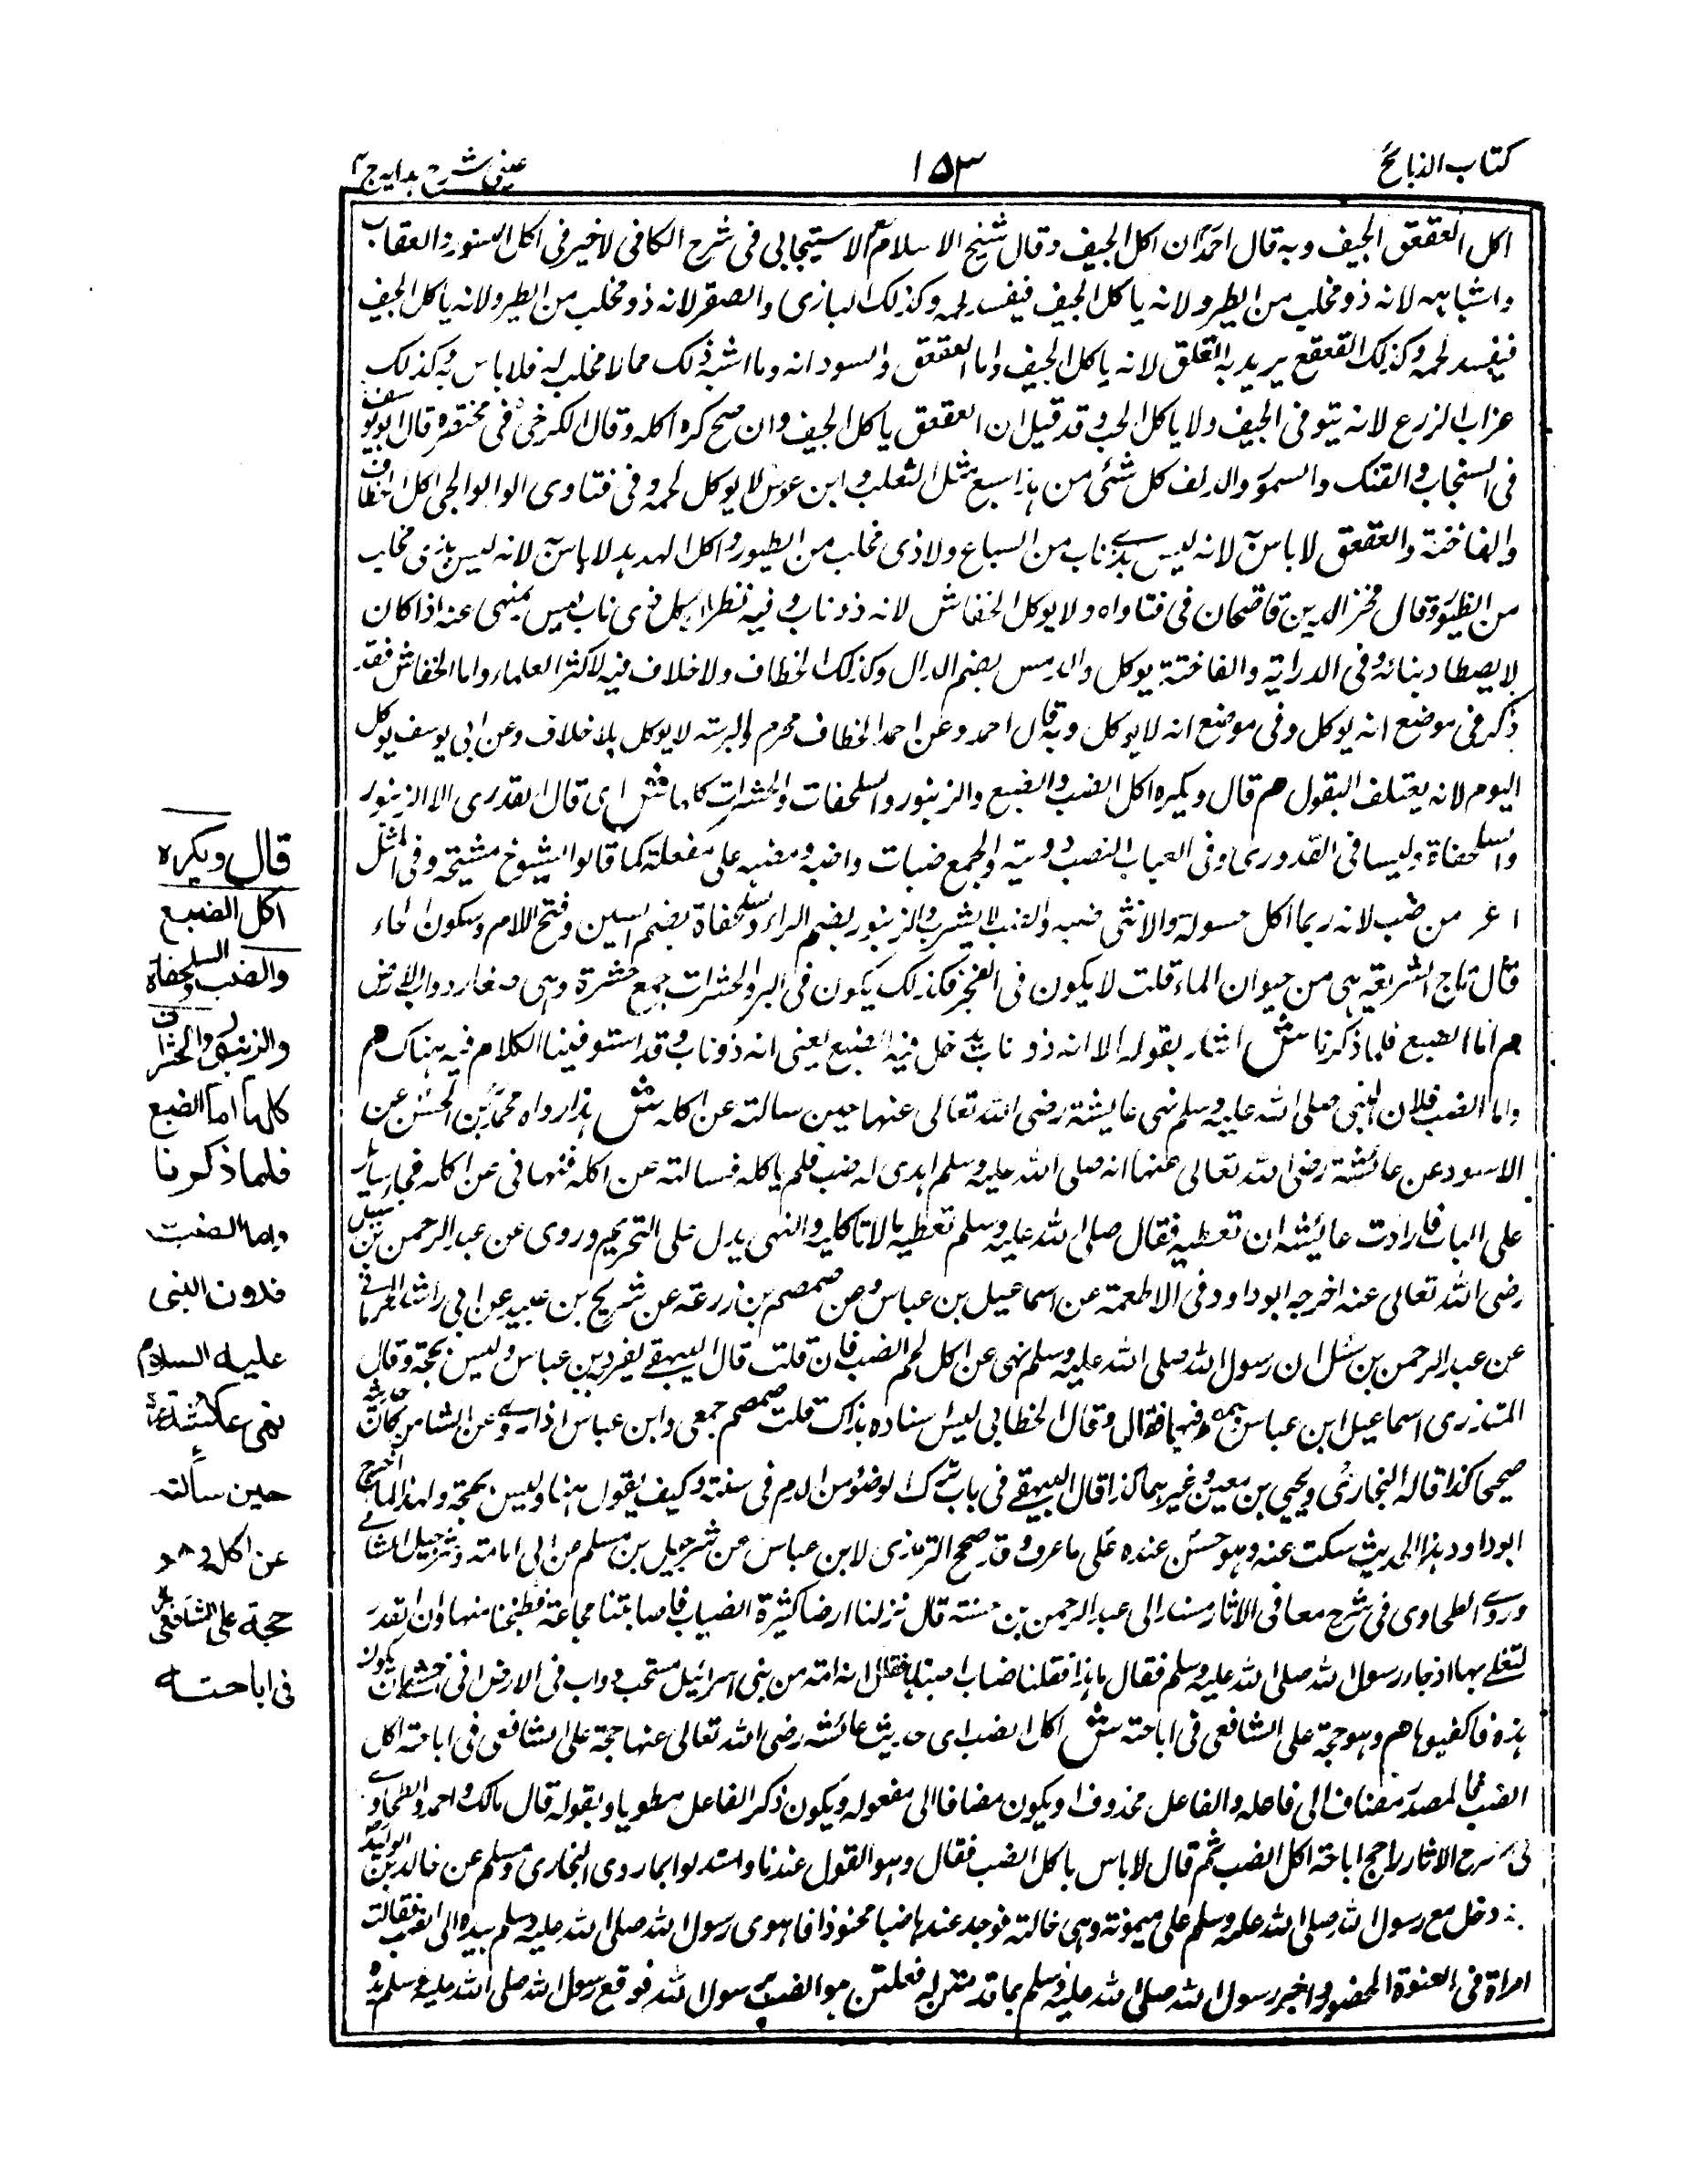 كتاب الذبائح
١٥٣
عيني شرح هدايه ج ٤
اكل العقعق الجيف وبه قال احمد ان اكل الجيف وقال شيخ الاسلام الاسبيجابي في شرح الكافي لاخير في اكل النسور والعقاب
واشباهه لانه ذو مخلب من الطير ولانه ياكل الجيف فيفسد لحمه وكذلك البازي والصقر لانه ذو مخلب من الطير ولانه ياكل الجيف
فيفسد لحمه وكذلك القعقع يريد به القلق لانه ياكل الجيف واما العقعق والسودانه وما اشبه ذلك مما لا مخلب له فلا باس به وكذلك
غراب الزرع لانه يتوفى الجيف ولا ياكل الحب وقد قيل ان العقعق ياكل الجيف وان صح كره اكله وقال الكرخي في مختصره قال ابويوسف
في السنجاب والفنك والسمور والدلف كل شئ من هذا سبع مثل الثعلب وابن عرس لا يوكل لحمه وفي فتاوى الوالوالجي اكل الخطاف
والفاختة والعقعق لا باس به لانه ليس بذي ناب من السباع ولا ذي مخلب من الطيور واكل الهدهد لا باس به لانه ليس بذي مخلب
من الطيور وقال فخر الدين قاضيخان في فتاواه ولا يوكل الخفاش لانه ذو ناب وفيه نظر لان كل ذي ناب ليس بمنهى عنه اذا كان
لا يصطاد بنابه وفي الدراية والفاختة يوكل والدبس بضم الدال وكذلك الخطاف ولا خلاف فيه لاكثر العلماء واما الخفاش فقد
ذكر في موضع انه يوكل وفي موضع انه لا يوكل وبه قال احمد وعن احمد الخطاف محرم والبرته لا يوكل بلا خلاف وعن ابي يوسف يوكل
اليوم لانه يعتلف البقول هم قال ويكره اكل الضب والضبع والزنبور والسلحفات والحشرات كلها ش اى قال القدرى الا الزنبور
والسلحفاة وليسا في القدوري وفي العباب الضب دويبة والجمع ضبات واضب ومضبه على مفعلة كما قالوا الشيوخ مشيخة وفي المثل
من ضب لانه ربما اكل حسولة والانثى ضبه والضب لا يشرب والزنبور بضم الزاء والسلحفاة بضم السين وفتح اللام وسكون الحاء
قال تاج الشريعة هي من حيوان الماء قلت لا يكون في البحر فكذلك يكون في البر والحشرات جمع حشرة وهى صغار دواب الارض
هم اما الضبع فلما ذكرنا ش اشار بقوله الا انه ذو ناب يدخل فيه الضبع يعني انه ذو ناب وقد استوفينا الكلام فيه هناك هم
واما الضب فلان النبي صلى الله عليه وسلم نهى عايشة رضى الله تعالى عنها حين سالته عن اكله ش هذا رواه محمد بن الحسن عن
الاسود عن عائشة رضى الله تعالى عنها انه صلى الله عليه وسلم اهدى له ضب فلم ياكله فسالته عن اكله فنهانى عن اكله فجاء سائل
على الباب فارادت عائشه ان تعطيه فقال صلى الله عليه وسلم تعطيه مالا تاكليه والنهى يدل على التحريم وروى عن عبد الرحمن بن شبل
رضى الله تعالى عنه اخرجه ابو داود في الاطعمة عن اسماعيل بن عباس وعن ضمضم بن زرعة عن شريح بن عبيد عن ابي راشد الحراني
عن عبد الرحمن بن شبل ان رسول الله صلى الله عليه وسلم نهى عن اكل لحم الضب فان قلت قال البيهقى تفرد بن عباس وليس بحجة وقال
المنذرى اسماعيل ابن عباس وضمضم فيهما مقال وقال الخطابي ليس اسناده بذاك قلت ضمضم حمصى وابن عباس اذا روى عن الشامين كان حديثه
صحيحا كذا قاله البخارى ويحيى بن معين وغيرهما كذا قال البيهقى في باب ترك الوضوء من الدم في سننه وكيف يقول هنا وليس بحجة ولهذا لما اخرج
ابو داود هذا الحديث سكت عنه وهو حسن عنده على ما عرف وقد صحح الترمذى لابن عباس عن شرحبيل بن مسلم من ابي امامة وشرحبيل الشامي
وروى الطحاوى في شرح معانى الاثار مسندا الى عبد الرحمن بن حسنة قال نزلنا ارضا كثيرة الضباب فاصابتنا مجاعة فطبخنا منها وان القدر
لتغلى بها اذ جاء رسول الله صلى الله عليه وسلم فقال ما هذا فقلنا ضباب اصبناها فقال ان امة من بنى اسرائيل مسخت دواب في الارض انى اخشى ان يكون
هذه فاكفيوها هم وهو حجة على الشافعي في اباحته ش اكل الضب اى حديث عائشه رضى الله تعالى عنها حجة على الشافعى في اباحته اكل
الضب فالمصدر مضاف الى فاعله والفاعل محذوف او يكون مضافا الى مفعوله ويكون ذكر الفاعل مطويا وبقوله قال مالك واحمد والطحاوى
في شرح الاثار راجح اباحة اكل الضب ثم قال لا باس باكل الضب فقال وهو القول عندنا واستدلوا بما روى البخارى ومسلم عن خالد بن الوليد
دخل مع رسول الله صلى الله عليه وسلم على ميمونة وهى خالته فوجد عندها ضبا محنوذا فاهوى رسول الله صلى الله عليه وسلم بيده الى الضب فقالت
امراة في النسوة الحضور اخبر رسول الله صلى الله عليه وسلم بما قدمتن له فعلتن هو الضب يا رسول الله فوقع رسول الله صلى الله عليه وسلم يده
قال ويكره
اكل الضبع
والضب والسلحفاة
والزنبور والحشرات
كلها اما الضبع
فلما ذكرنا
واما الضب
فلان النبى
عليه السلام
نهى عائشة
حين سألته
عن اكله وهو
حجة على الشافعى
فى اباحته